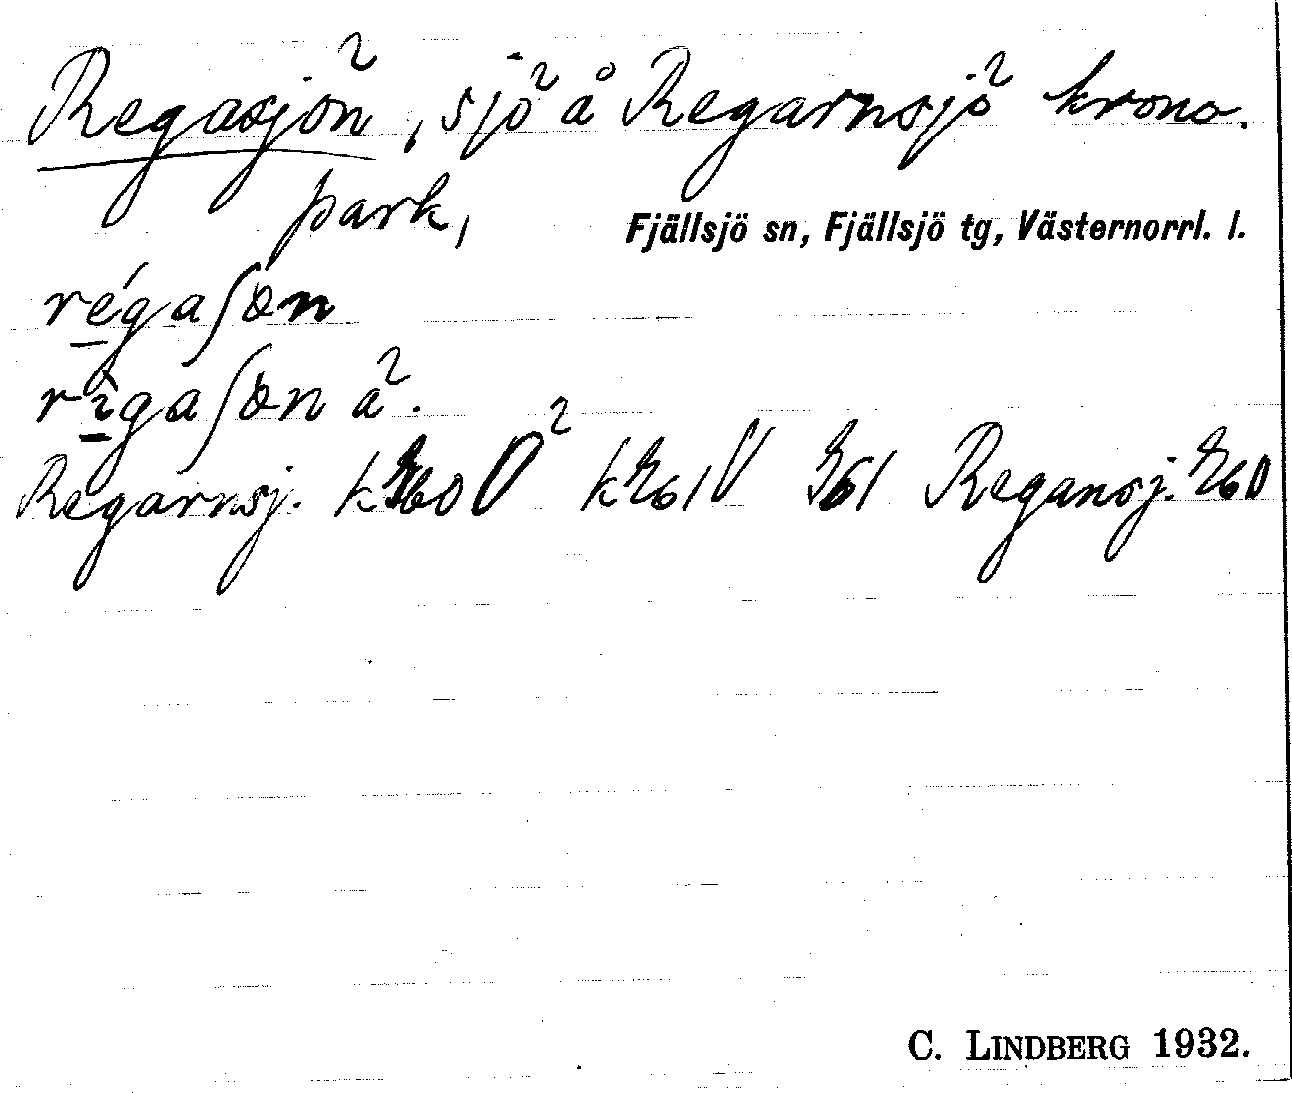 Regasjön, sjö å Regarnsjö krono.
park,
Fjällsjö sn, Fjällsjö tg, Västernorrl. l.
régaʃön
rìgaʃön å.
Regarnsj. k 61 61 Regansj. 60
C. LINDBERG 1932.